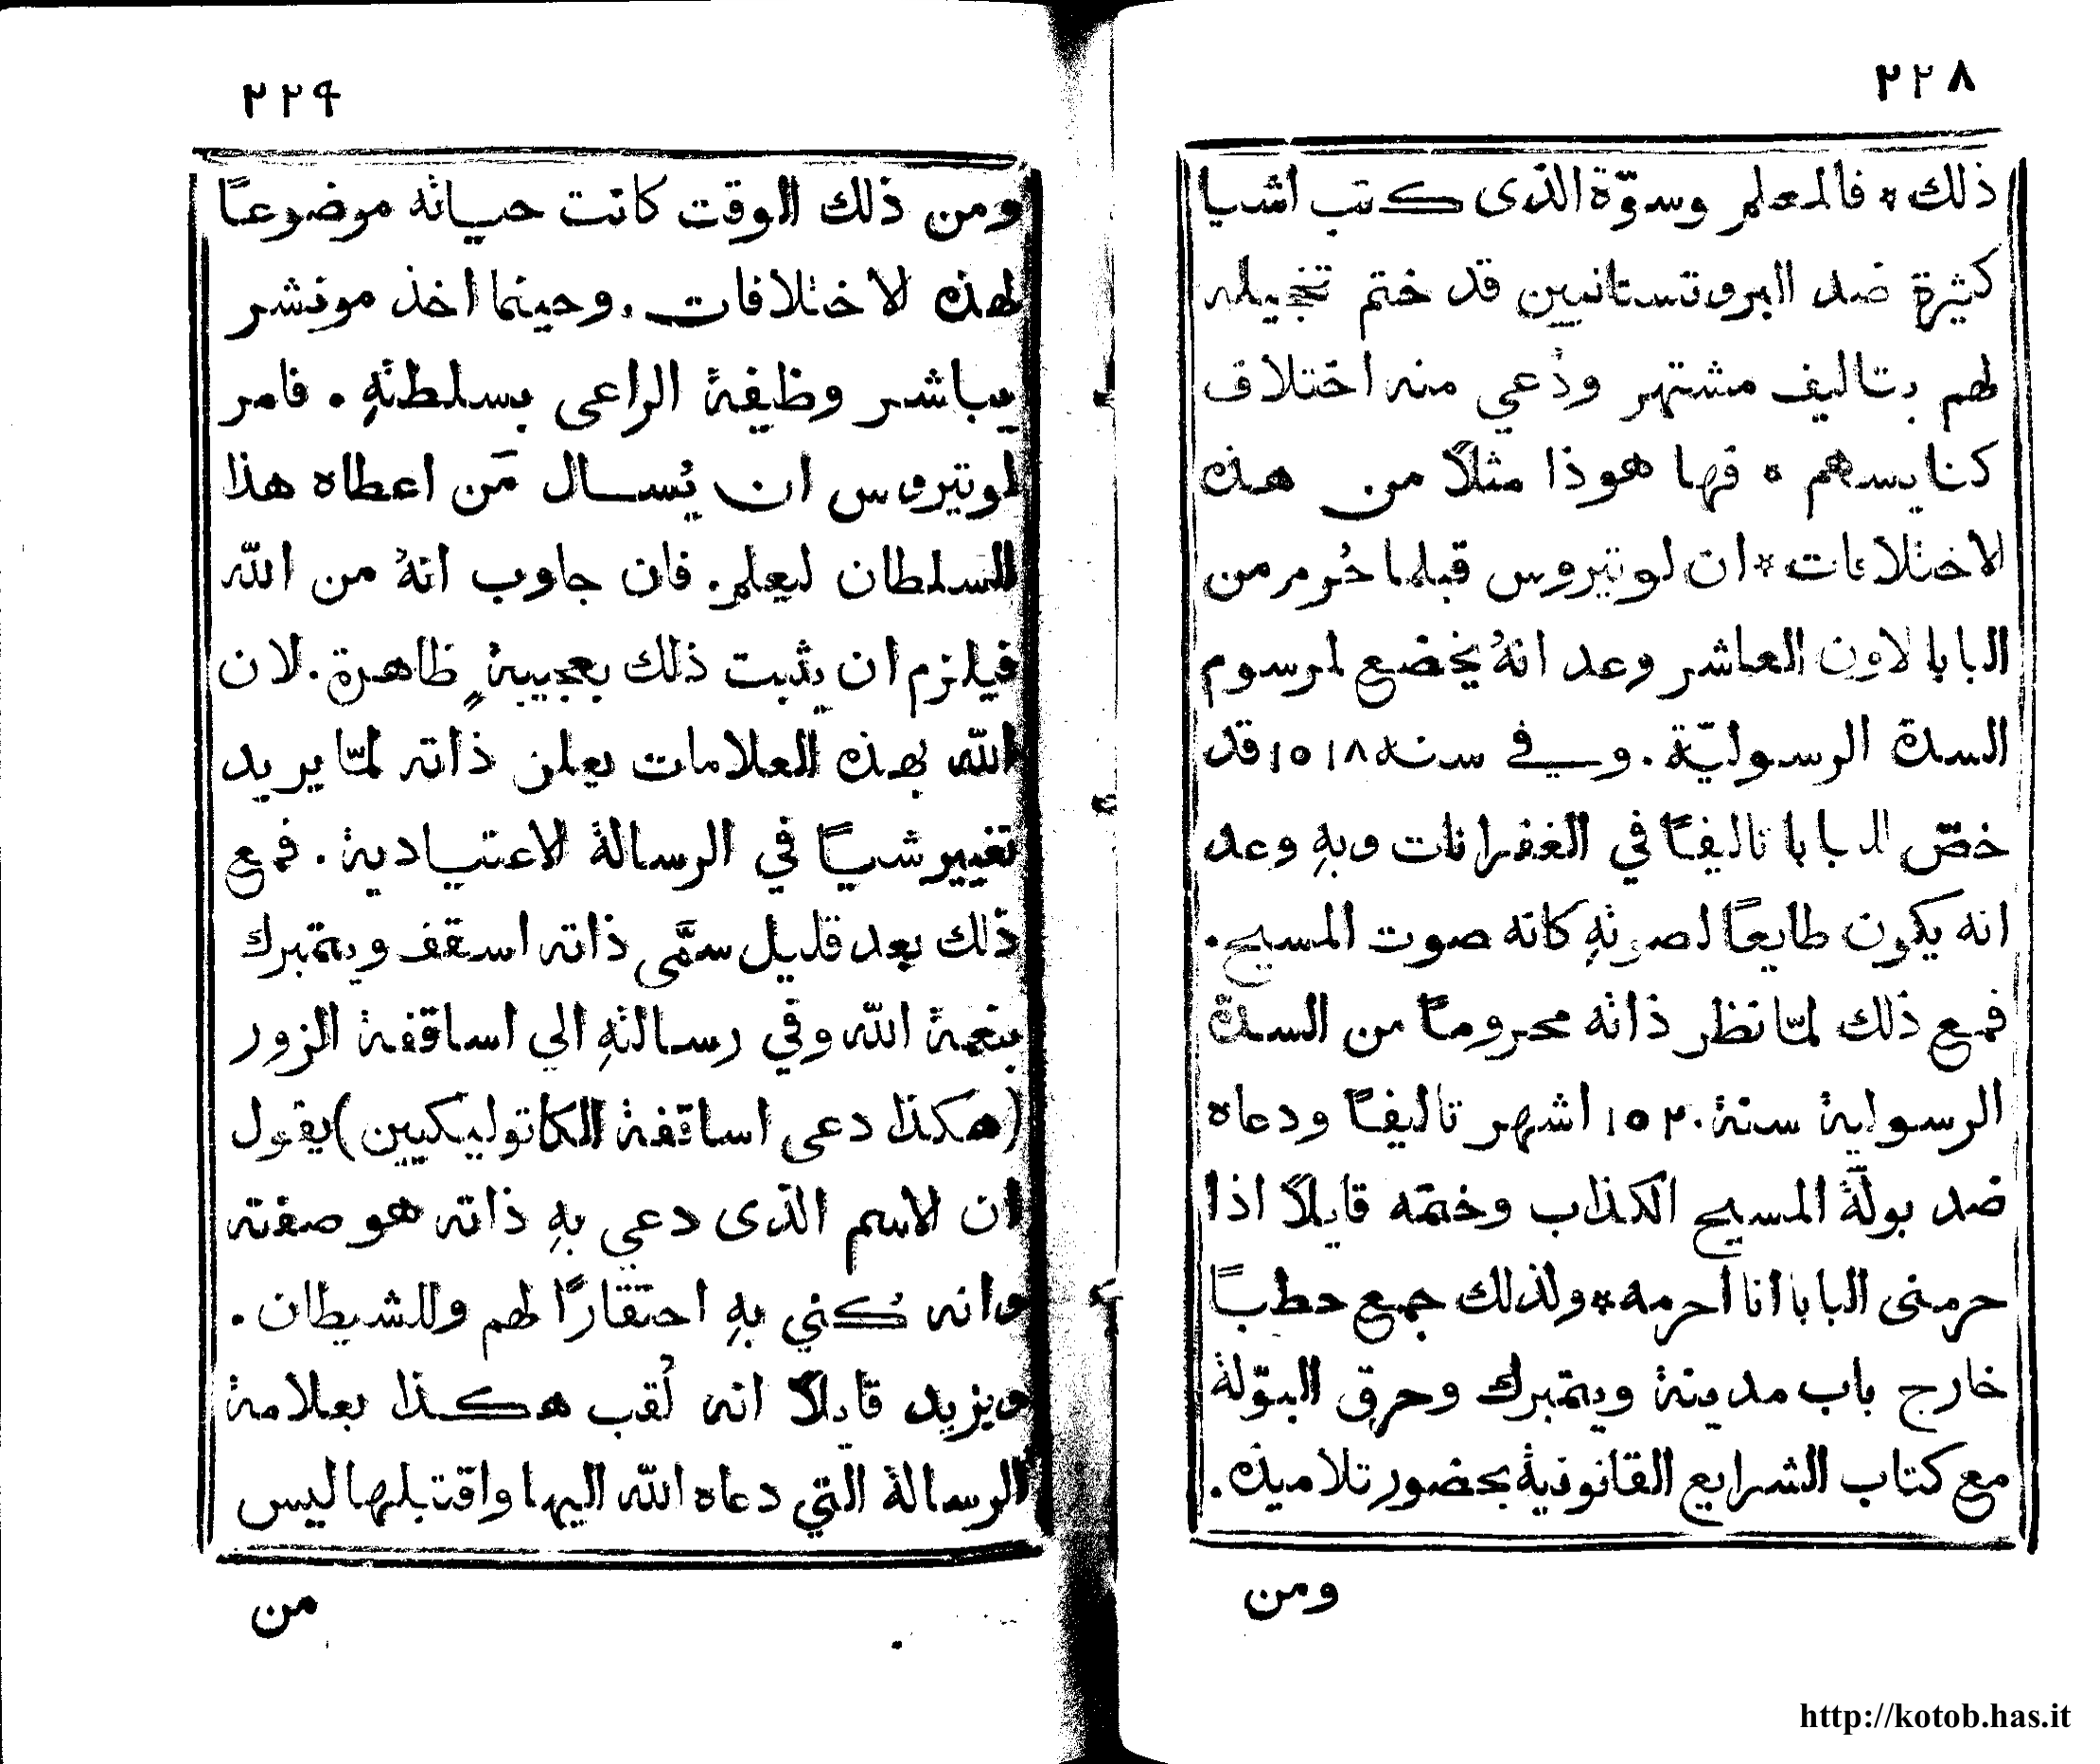 ٢٢٨
ذلك * فالمعلم وسوّة الذى كتب اشيا
كثيرة ضد البروتستانيين قد ختم تخجيله
لهم بتاليف مشتهر ودُعي منه اختلاف
كنايسهم * فها هوذا مثلاً من هذه
الاختلافات * ان لوتيروس قبلما حُرم من
البابا لاون العاشر وعد انهُ يخضع لمرسوم
السدة الرسوليّة. وفي سنة ١٥١٨ قد
خصّ البابا تاليفًا في الغفرانات وبهِ وعد
انه يكون طايعًا لصوتهِ كانه صوت المسيح.
فمع ذلك لمّا نظر ذاته محرومًا من السدة
الرسولية سنة ١٥٢٠ اشهر تاليفًا ودعاه
ضد بولّة المسيح الكذاب وختمه قايلاً اذا
حرمنى البابا انا احرمه * ولذلك جمع حطبًا
خارج باب مدينة ويتمبرك وحرق البوّلة
مع كتاب الشرايع القانونية بحضور تلاميذه.
ومن
٢٢٩
ومن ذلك الوقت كانت حياته موضوعًا
لهذه الاختلافات. وحينما اخذ مونشر
يباشر وظيفة الراعى بسلطتهِ. فامر
لوتيروس ان يُسال مَن اعطاه هذا
السلطان ليعلم. فان جاوب انهُ من الله
فيلزم ان يثبت ذلك بعجيبةٍ ظاهرة. لان
الله بهذه العلامات يعلن ذاته لمّا يريد
تغيير شيًا في الرسالة الاعتيادية. فمع
ذلك بعد قليل سمَّى ذاته اسقف ويتمبرك
بنعمة الله وفي رسالتهِ الي اساقفة الزور
(هكذا دعى اساقفة الكاتوليكيين) يقول
ان الاسم الذى دعي بهِ ذاته هو صفته
وانه كُني بهِ احتقارًا لهم وللشيطان.
ويزيد قايلاً انه لُقب هكذا بعلامة
الرسالة التي دعاه الله اليها واقتبلها ليس
من
http://kotob.has.it